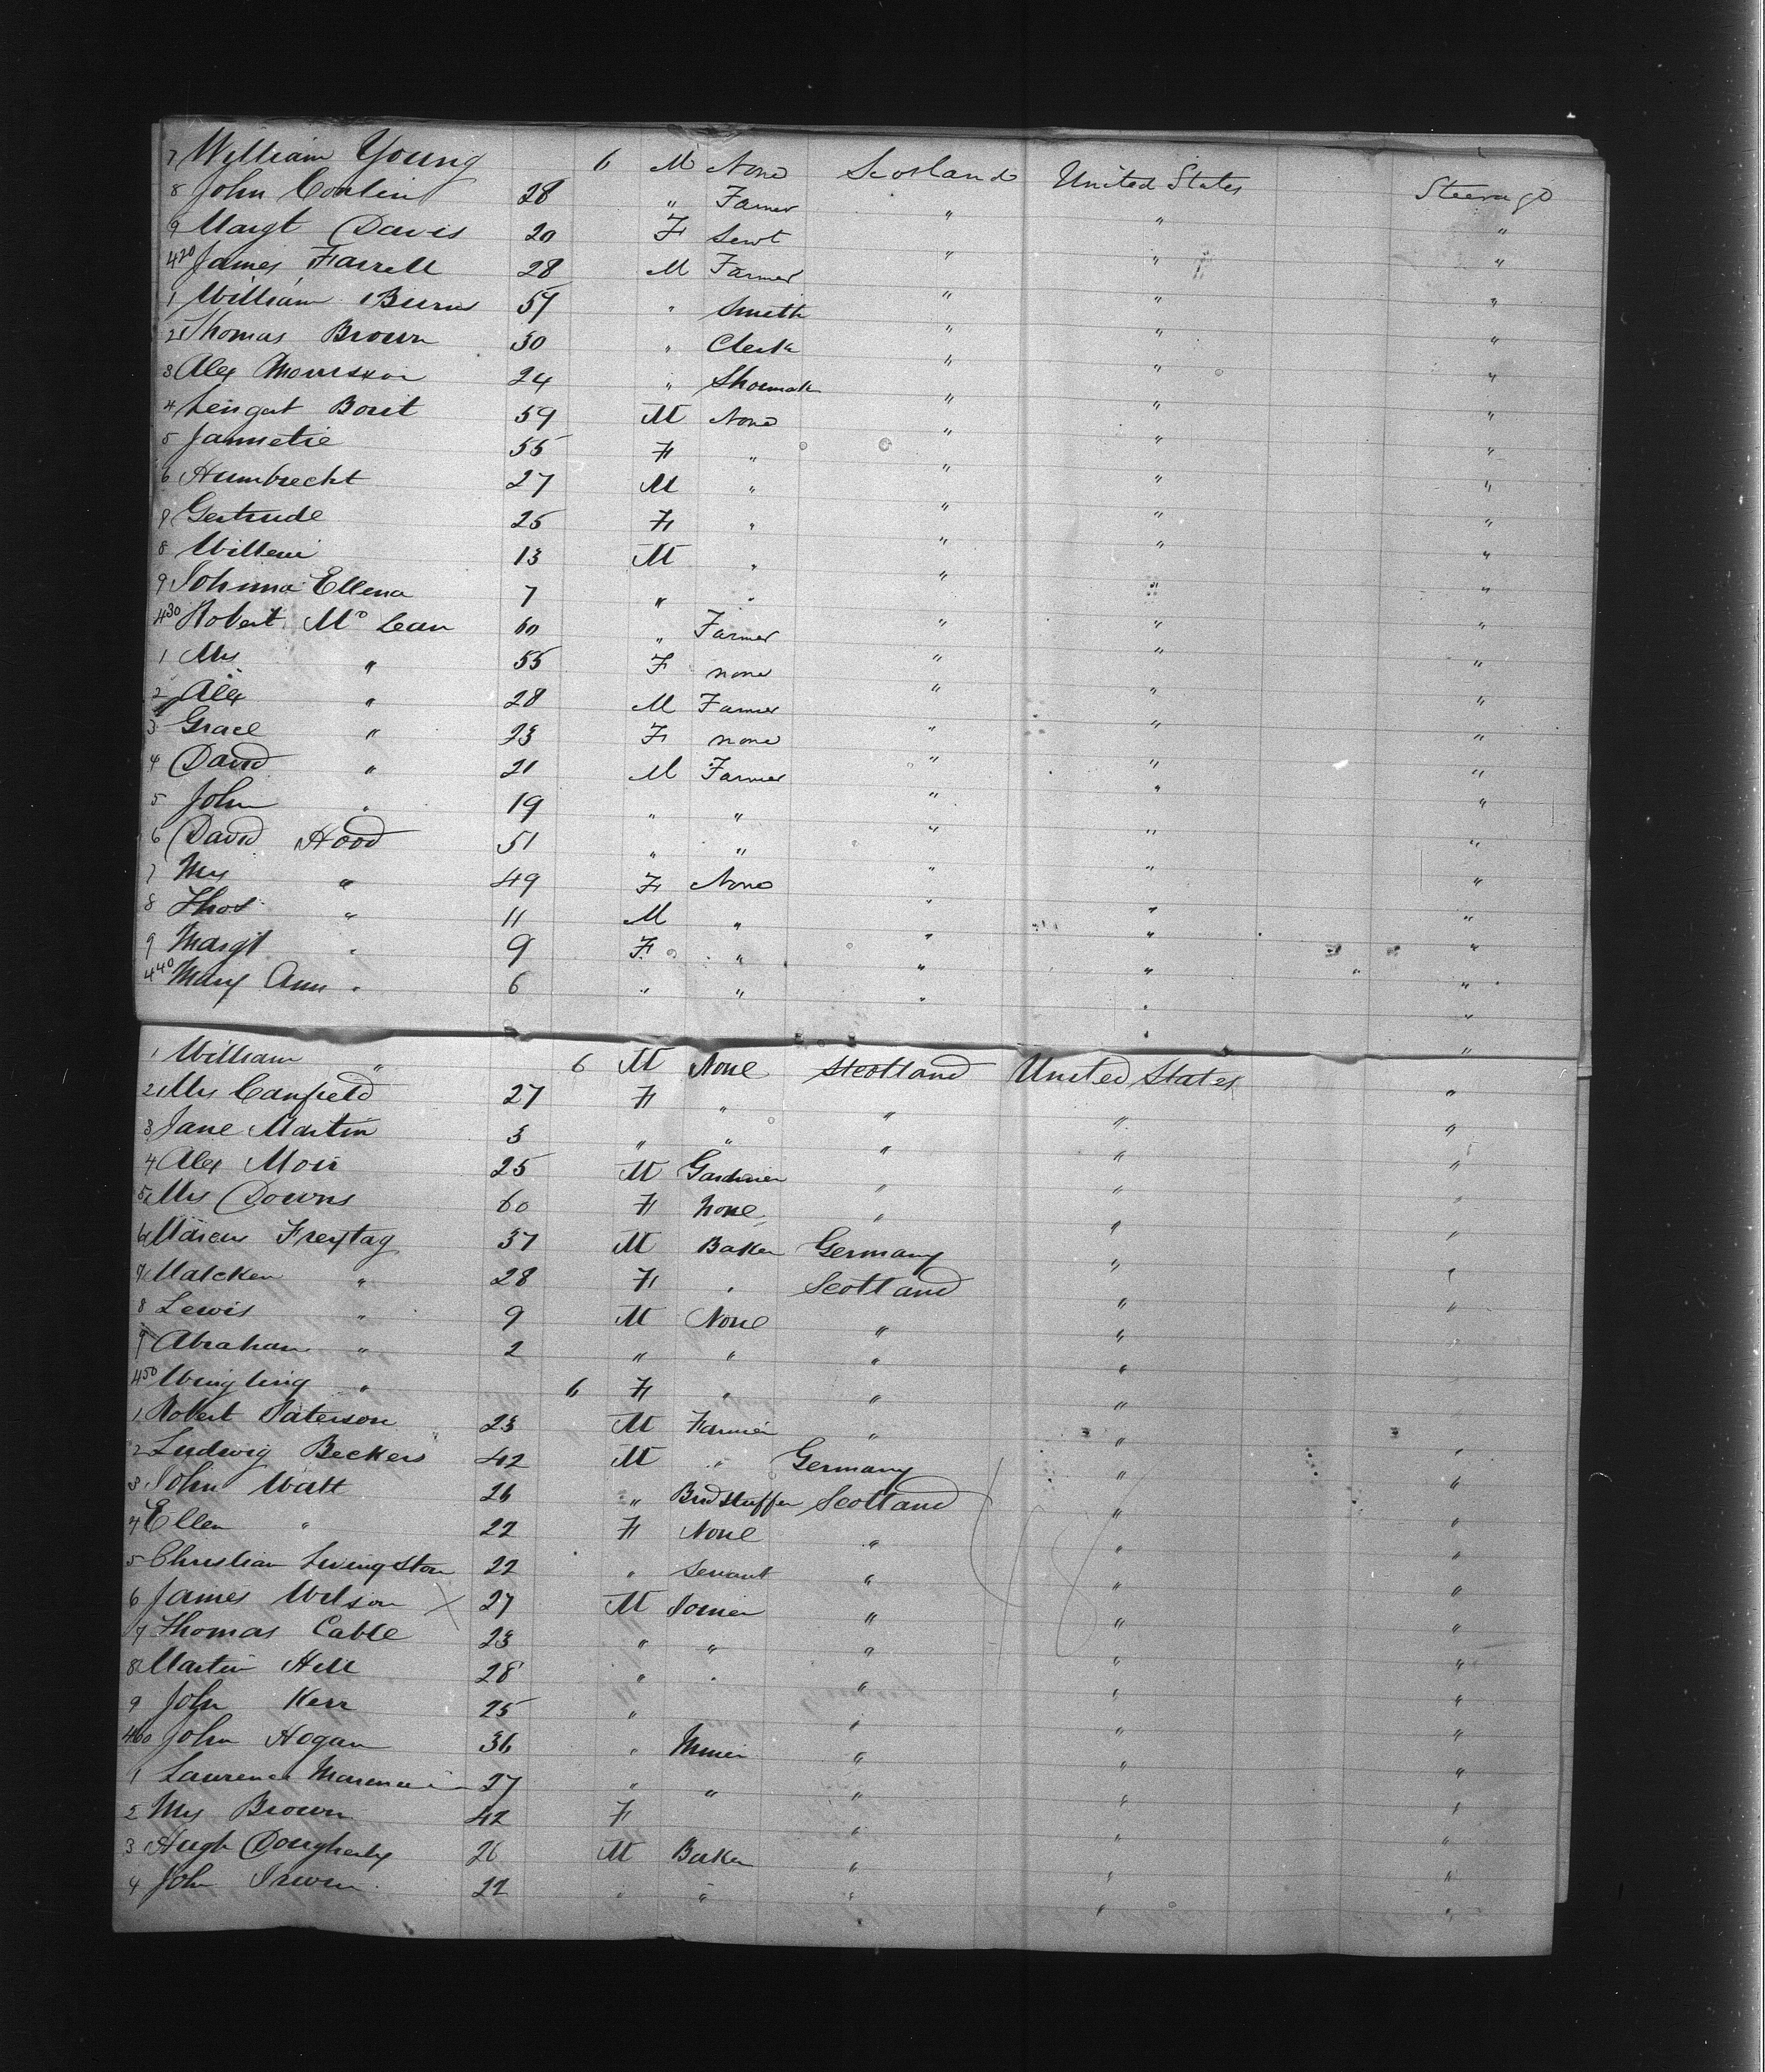 7 William Young 6 M None Scotland United States Steerage
8 John Conlin 28 " Farmer " " "
9 Margt Davis 20 F Servt " " "
420 James Farrell 28 M Farmer " " "
1 William Burns 57 " Smith " " "
2 Thomas Brown 30 " Clerk " " "
3 Alex Morrison 24 " Shoemak " " "
4 Bout 59 M None " " "
5 Jannetie 55 F " " " "
6 Humbrecht 27 M " " " "
7 Gertrude 25 F " " " "
8 Willem 13 M " " " "
9 Ellena 7 " " " " "
430 Robert Mc Lean 60 " Farmer " " "
1 Mrs " 55 F none " " "
2 Alex " 28 M Farmer " " "
3 Grace " 23 F none " " "
4 David " 21 M Farmer " " "
5 John " 19 " " " " "
6 David Hood 51 " " " " "
7 Mrs " 49 F None " " "
8 Thos " 11 M " " " "
9 Margt " 9 F " " " "
440 Mary Ann " 6 " " " " "
1 William " 6 M None Scotland United States "
2 Mrs Canfield 27 F " " " "
3 Jane Martin 3 " " " " "
4 Alex Moir 25 M Gardnier " " "
5 Mrs Downs 60 F None " " "
6 Marcus Freytag 37 M Baker Germany " "
7 Malcken " 28 F " Scotland " "
8 Lewis " 9 M None " " "
9 Abraham " 2 " " " " "
450 " 6 F " " " "
1 Robert Paterson 23 M Farmer " " "
2 Ludwig Beckers 42 M " Germany " "
3 John Watt 26 " Bird Stuffer Scotland " "
4 Ellen " 22 F None " " "
5 Christian Livingston 22 " Servant " " "
6 James Wilson X 27 M Joiner " " "
7 Thomas Cable 23 " " " " "
8 Martin Hill 28 " " " " "
9 John Kerr 25 " " " "
460 John Hogan 36 " Miner " " "
1 Lawrence 27 " " " " "
2 Mrs Brown 42 F " " "
3 Hugh Dougherty 26 M Baker " " "
4 John Irwin 22 " " " " "